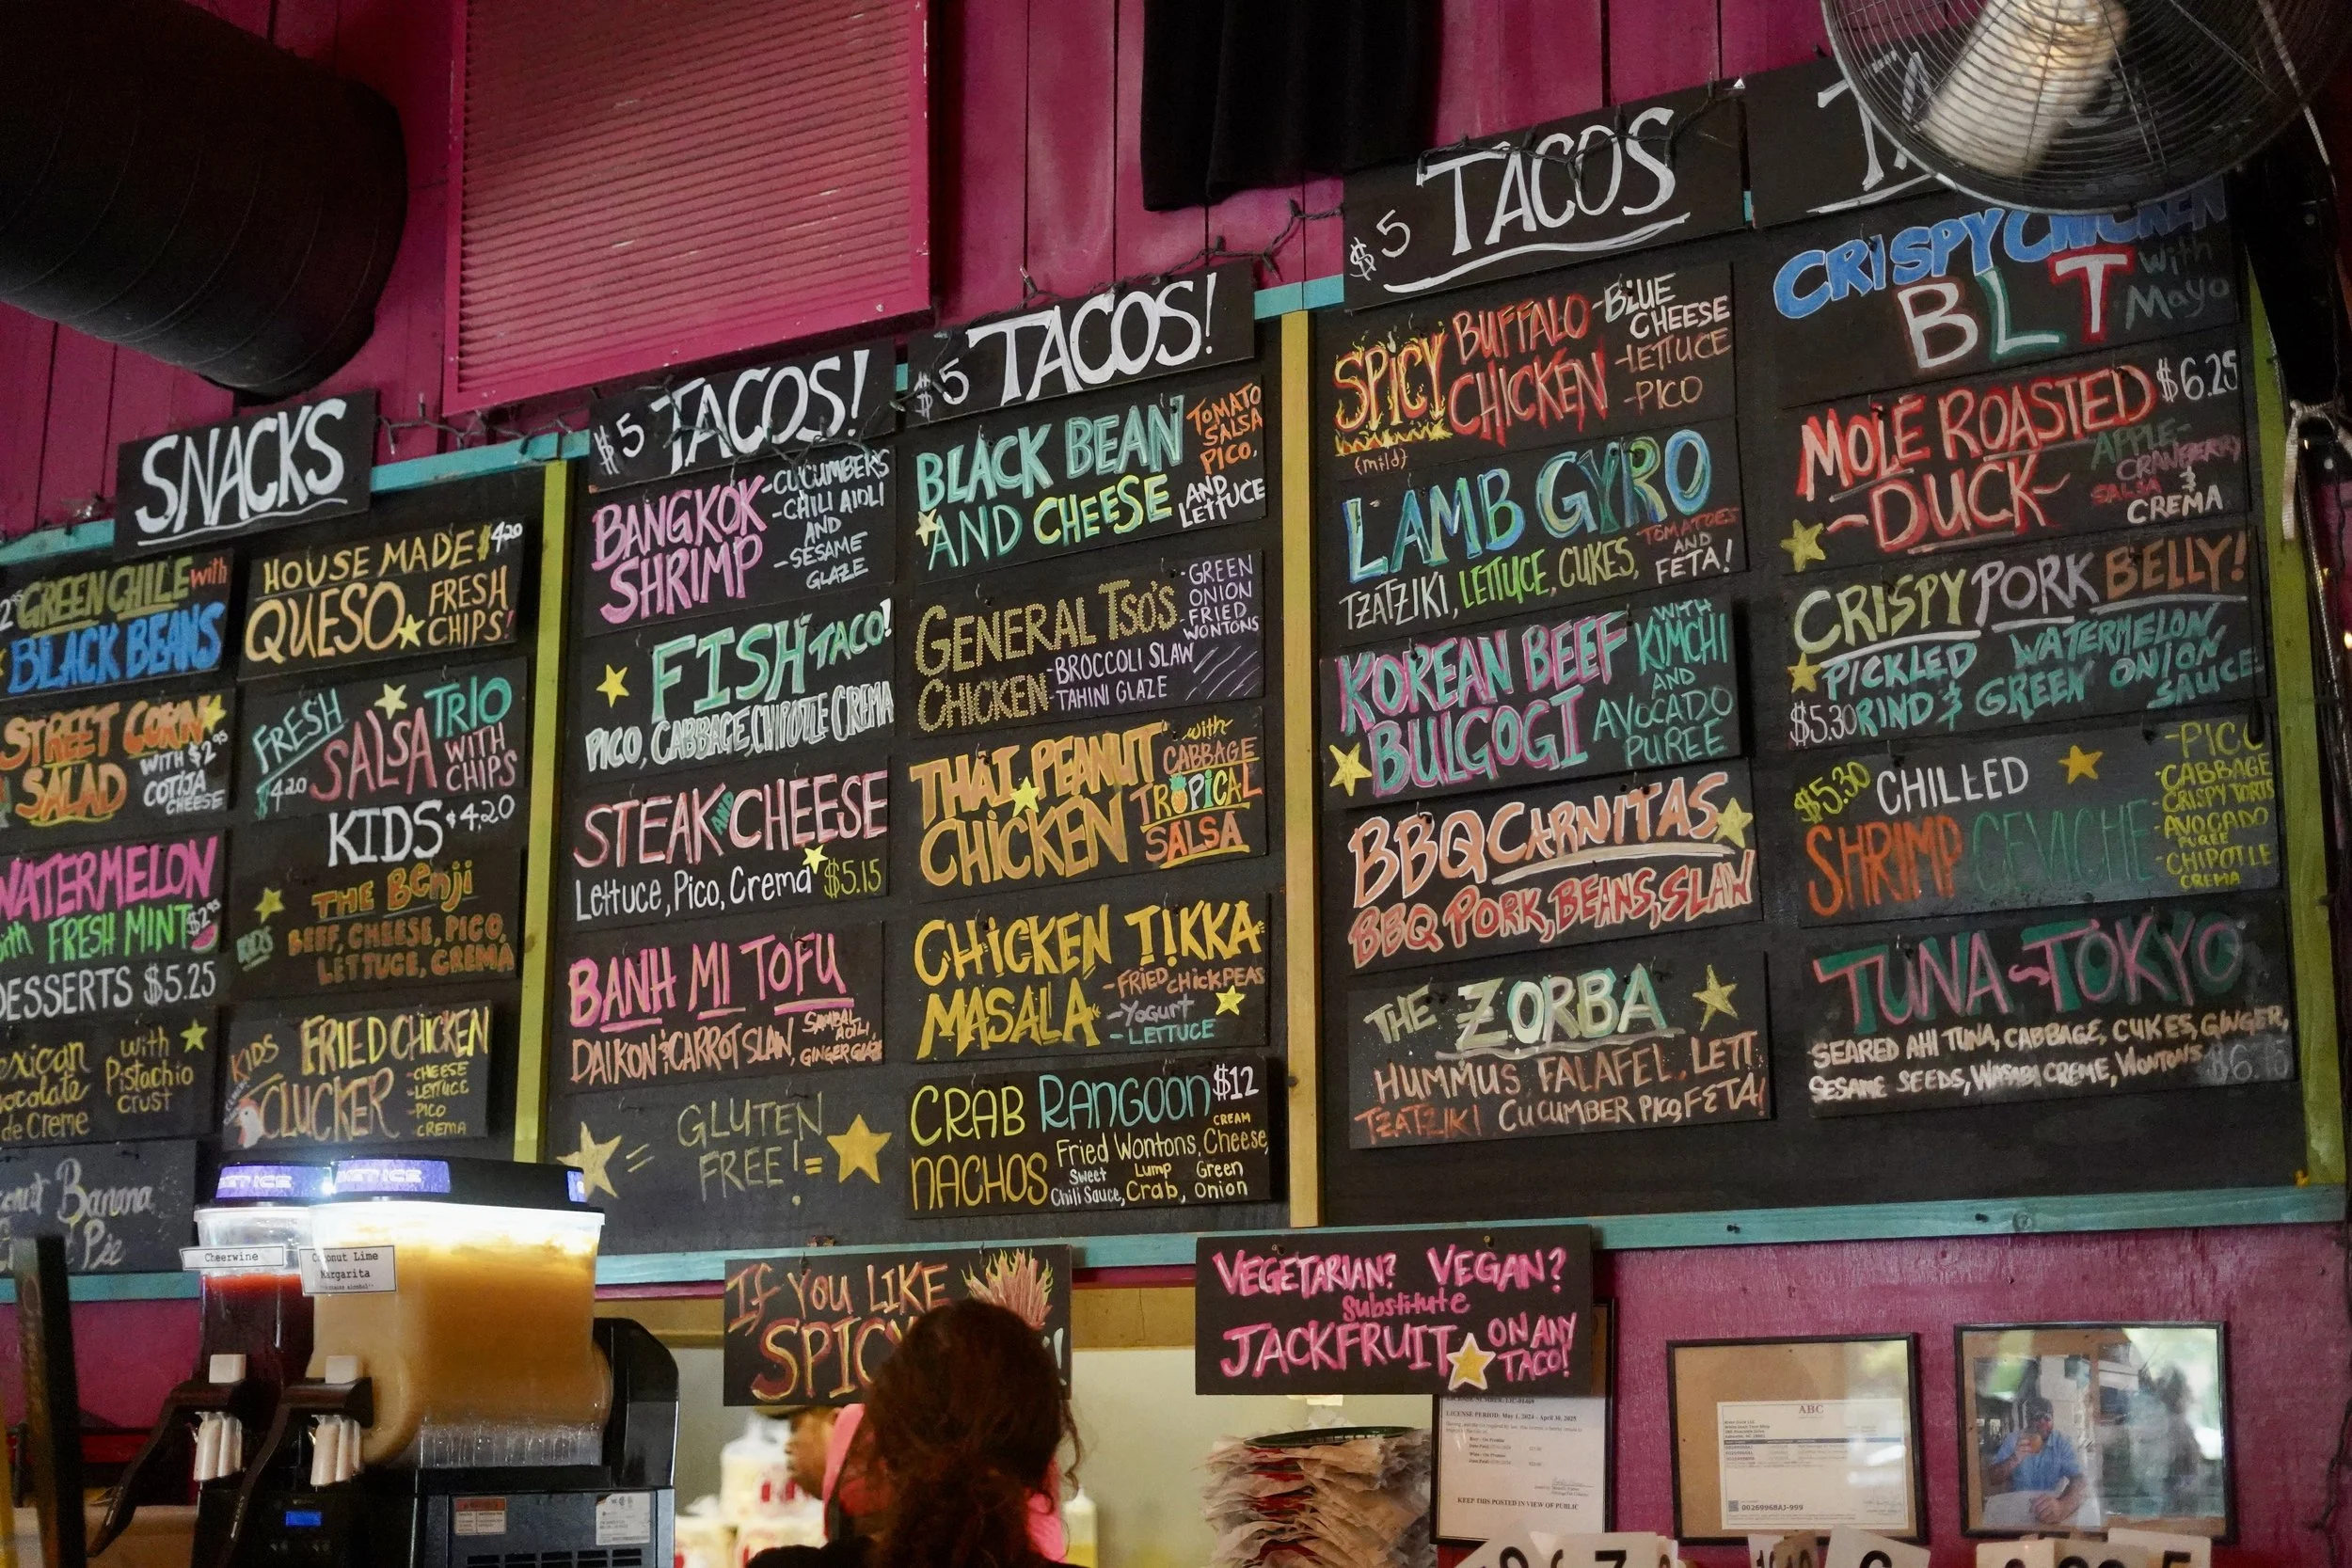 SNACKS
GREEN CHILE with
BLACK BEANS
STREET CORN
SALAD
WITH $2.95
COTIJA
CHEESE
WATERMELON
with FRESH MINT $2.95
DESSERTS $5.25
with
Pistachio
Crust
de Creme
Banana
HOUSE MADE $4.20
QUESO
FRESH
CHIPS!
FRESH
SALSA TRIO
$4.20
WITH
CHIPS
KIDS $4.20
THE Benji
KIDS
BEEF, CHEESE, PICO,
LETTUCE, CREMA
KIDS
FRIED CHICKEN
CLUCKER
-CHEESE
-LETTUCE
-PICO
CREMA
$5 TACOS!
BANGKOK
SHRIMP
-CUCUMBERS
-CHILI AIOLI
AND
-SESAME
GLAZE
FISH TACO!
PICO, CABBAGE, CHIPOTLE CREMA
STEAK AND CHEESE
Lettuce, Pico, Crema $5.15
BANH MI TOFU
DAIKON & CARROT SLAW,
SAMBAL
AOILI,
GINGER GLAZE
= GLUTEN
FREE! =
$5 TACOS!
BLACK BEAN
AND CHEESE
TOMATO
SALSA
PICO,
AND
LETTUCE
GENERAL TSO'S
CHICKEN
-GREEN
ONION
FRIED
WONTONS
-BROCCOLI SLAW
-TAHINI GLAZE
THAI PEANUT
CHICKEN
with
CABBAGE
TROPICAL
SALSA
CHICKEN TIKKA
MASALA
-FRIED CHICKPEAS
-YOGURT
-LETTUCE
CRAB RANGOON $12
NACHOS
Fried Wontons, CREAM Cheese,
Sweet Chili Sauce, Lump Crab, Green Onion
$5 TACOS
SPICY
BUFFALO
CHICKEN
{mild}
-BLUE
CHEESE
-LETTUCE
-PICO
LAMB GYRO
TZATZIKI, LETTUCE, CUKES,
TOMATOES
AND
FETA!
KOREAN BEEF
BULGOGI
WITH
KIMCHI
AND
AVOCADO
PUREE
BBQ CARNITAS
BBQ PORK, BEANS, SLAW
THE ZORBA
HUMMUS FALAFEL, LETT
TZATZIKI CUCUMBER PICO, FETA!
CRISPY CHICKEN
BLT
with
Mayo
MOLE ROASTED $6.25
~DUCK~
APPLE-
CRANBERRY
SALSA &
CREMA
CRISPY PORK BELLY!
PICKLED WATERMELON,
$5.30 RIND & GREEN ONION
SAUCE
$5.30 CHILLED
SHRIMP CEVICHE
-PICO
-CABBAGE
-CRISPY TORTS
-AVOCADO
PUREE
-CHIPOTLE
CREMA
TUNA~TOKYO
SEARED AHI TUNA, CABBAGE, CUKES, GINGER,
SESAME SEEDS, WASABI CREME, WONTONS $6.75
Cheerwine
Coconut Lime
Margarita
IF YOU LIKE
SPICY
VEGETARIAN? VEGAN?
substitute
JACKFRUIT
ON ANY
TACO!
LICENSE PERIOD: May 1, 2024 - April 30, 2025
KEEP THIS POSTED IN VIEW OF PUBLIC
ABC
00269968AJ-999